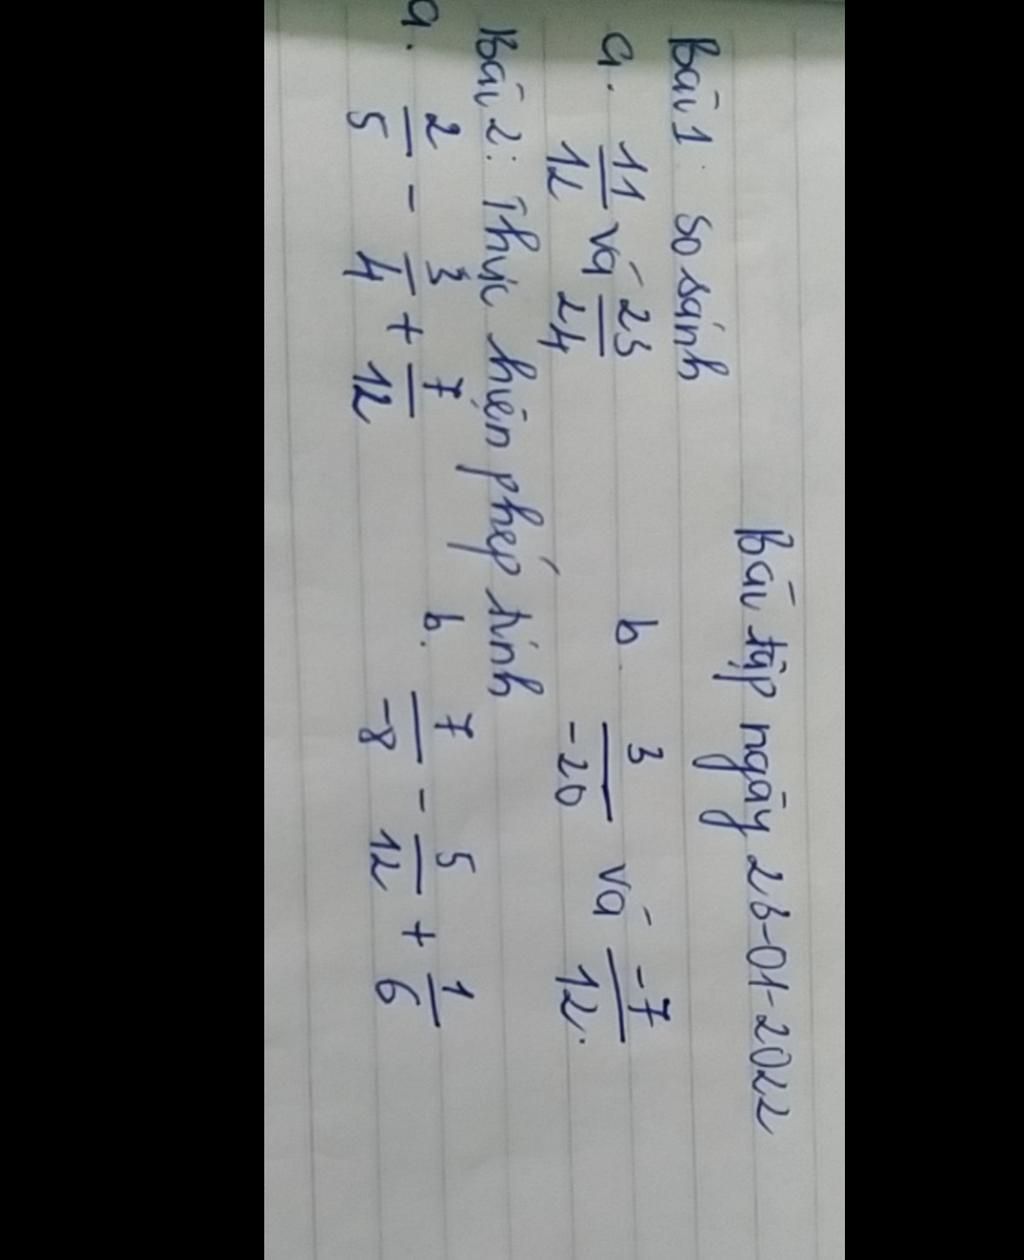 Bài tập ngày 26-01-2022
Bài 1: So sánh
a. 11/12 và 23/24 b. 3/-20 và -7/12.
Bài 2: Thực hiện phép tính
a. 2/5 - 3/4 + 7/12 b. 7/-8 - 5/12 + 1/6